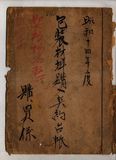 昭和十四年度
包装材料購入契約台帳
購買係